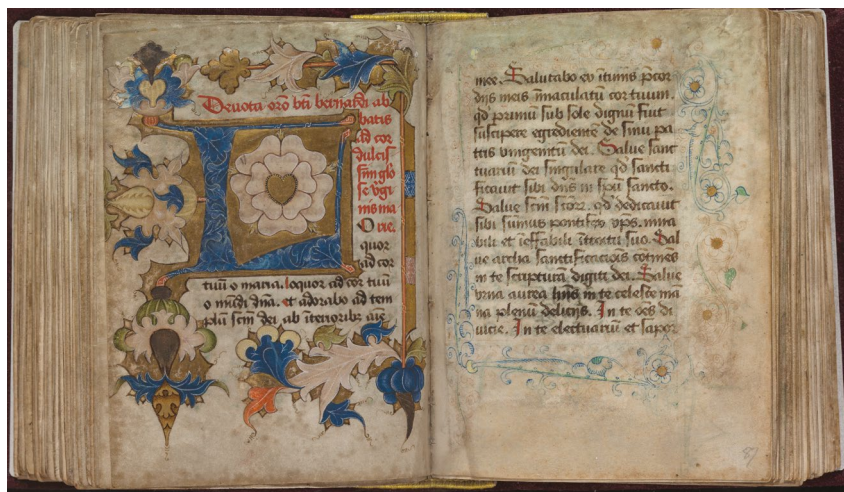 Deuota orõ bti bernardi ab
batis
ad cor
dulcis
sime glo
se v̄gi
nis ma
rie.
O
L
quor
ad cor
tuū o maria. loquor ad cor tuū
o mūdi dña. et adorabo ad tem
plū scm̄ dei ab īterioribz aīe
mee. Salutabo ex ītimis p̄cor
diis meis īmaculatū cor tuum.
qd̄ primū sub sole dignū fuit
suscipere egrediētē de sinu pa
tris vnigenitū dei. Salue sanc
tuariū dei singulare qd̄ sancti
ficauit sibi dn̄s in sp̄u sancto.
Salue scm̄ scōꝝ. qd̄ dedicauit
sibi sūmus pontifex xp̄s. mira
bili et īeffabili ītroitu suo. Sal
ue archa sanctificacōis cōtinēs
in te scripturā digiti dei. Salue
vrna aurea hn̄s in te celeste mā
na plenū deliciis. In te oēs di
uicie. In te electuariū et sapor
87